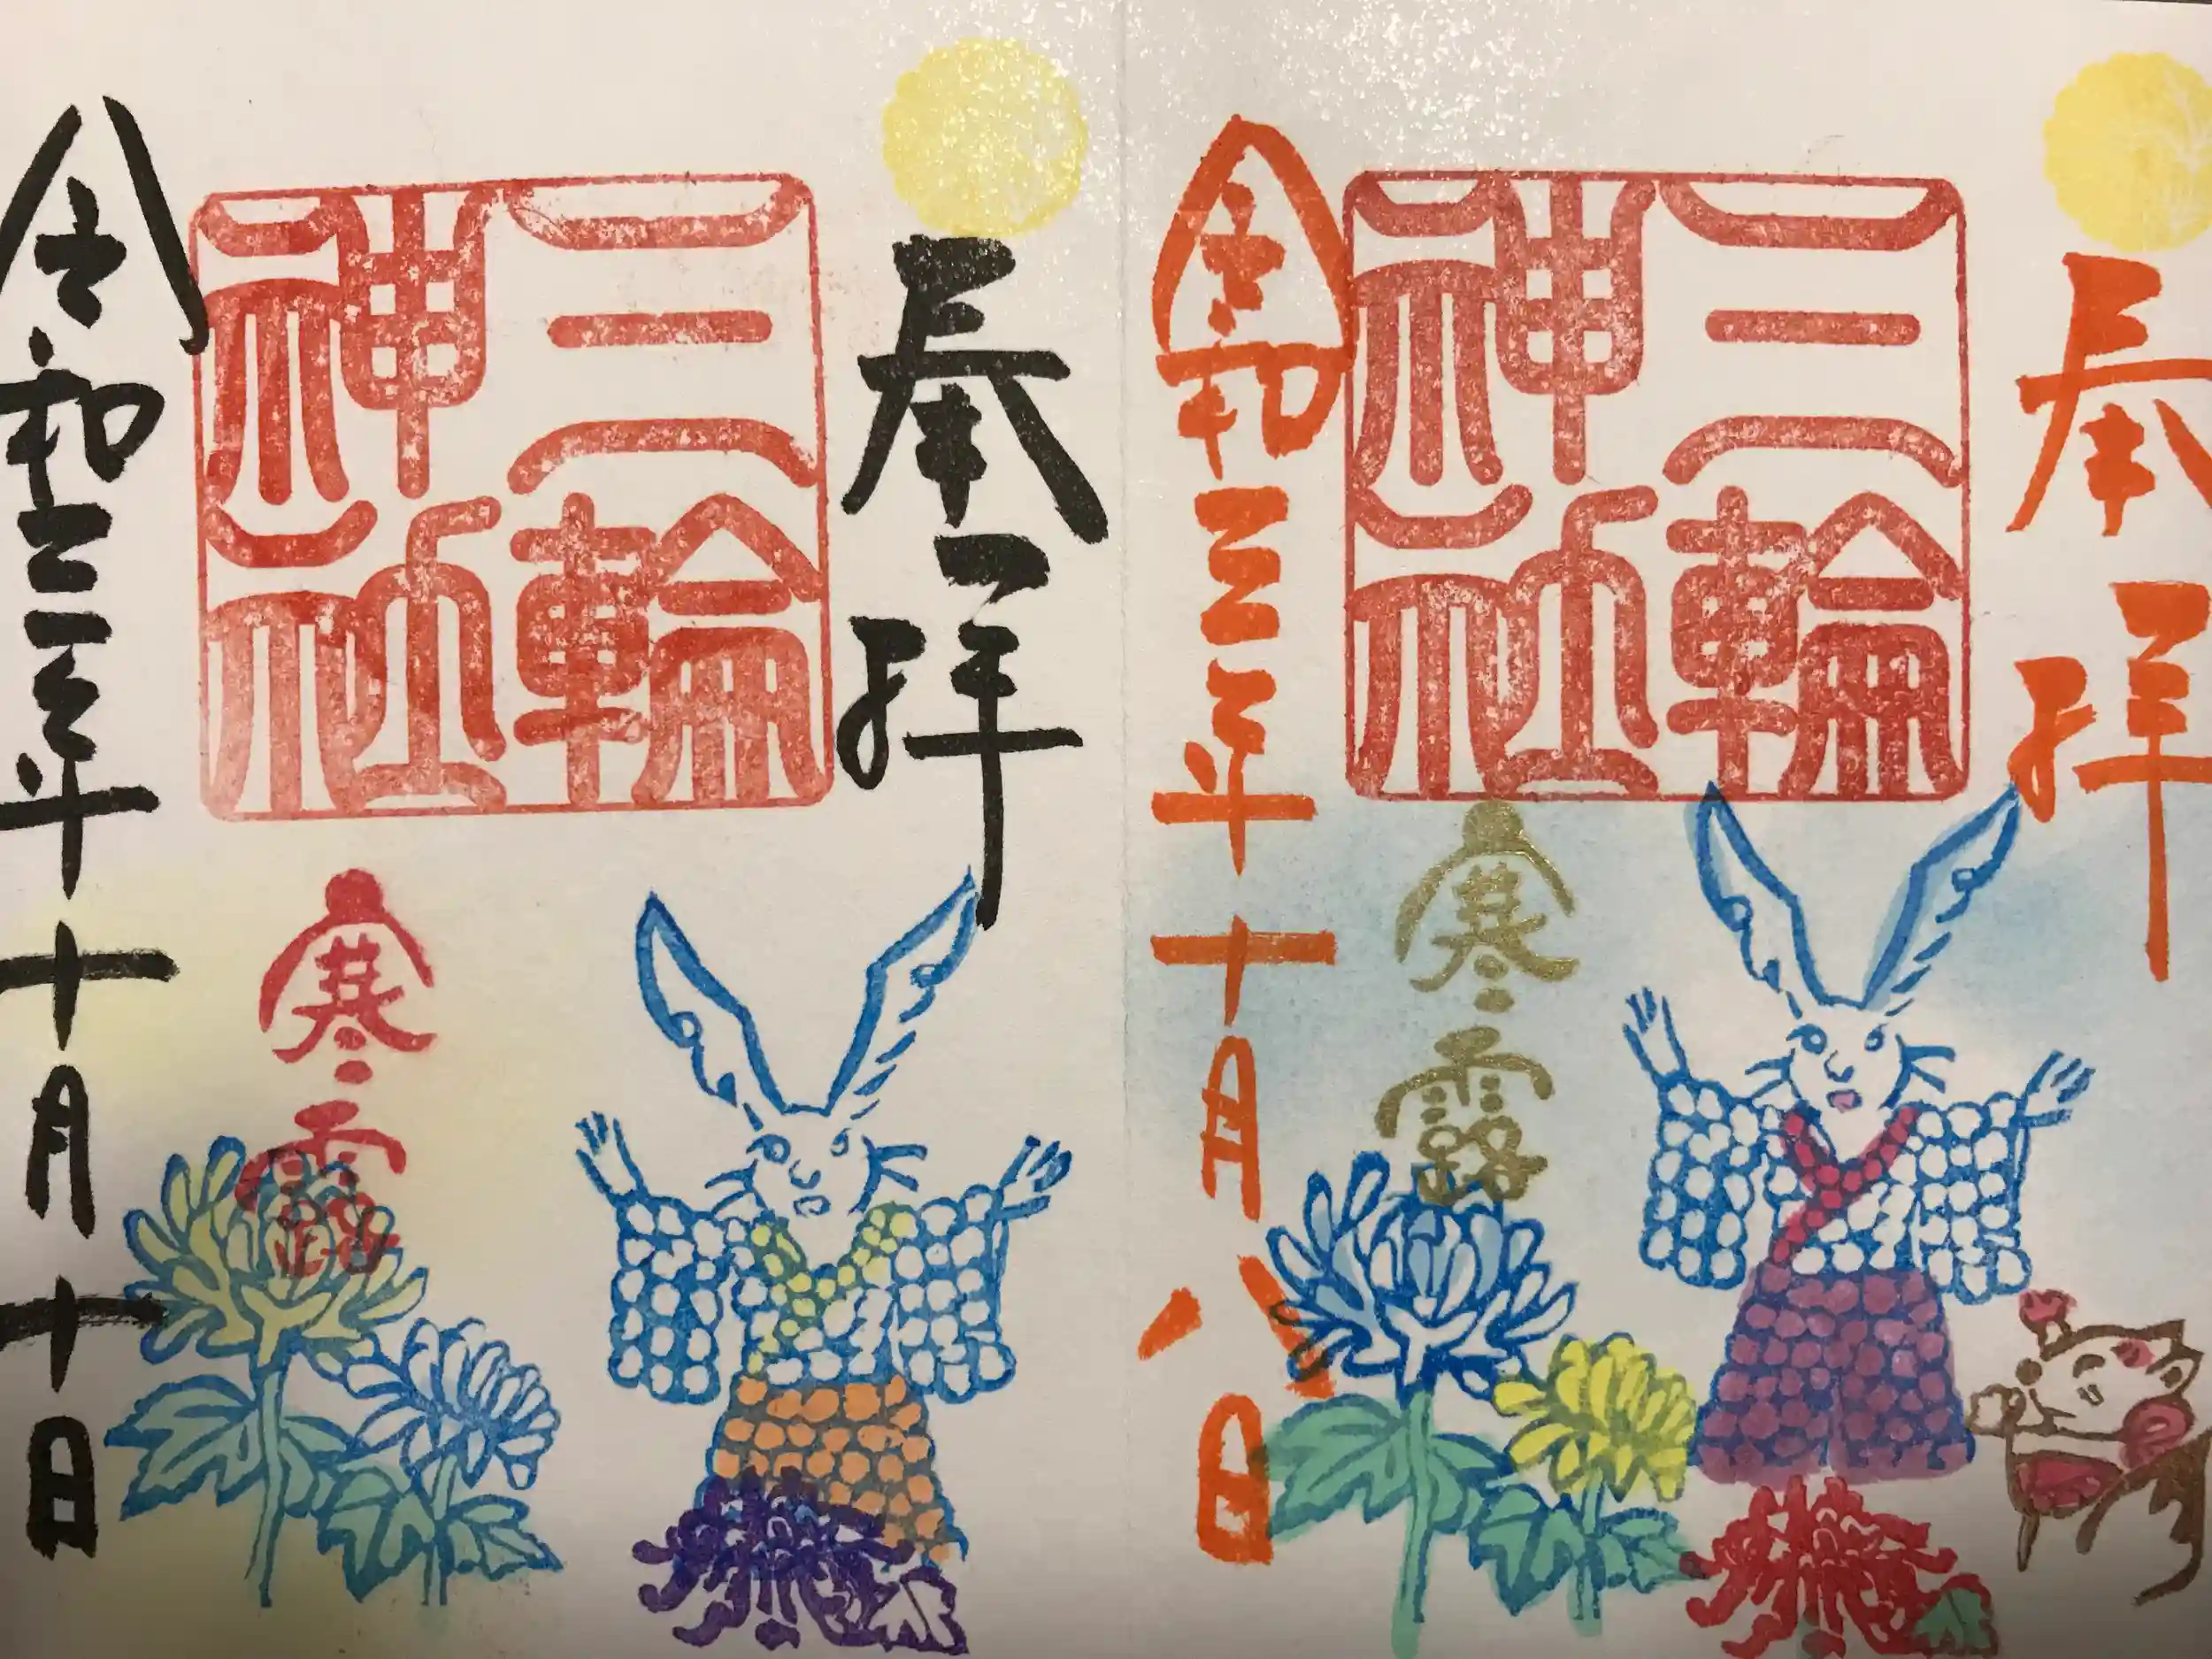 奉拝
三輪
神社
令和三年十月八日
寒露
奉拝
三輪
神社
令和三年十月十日
寒露